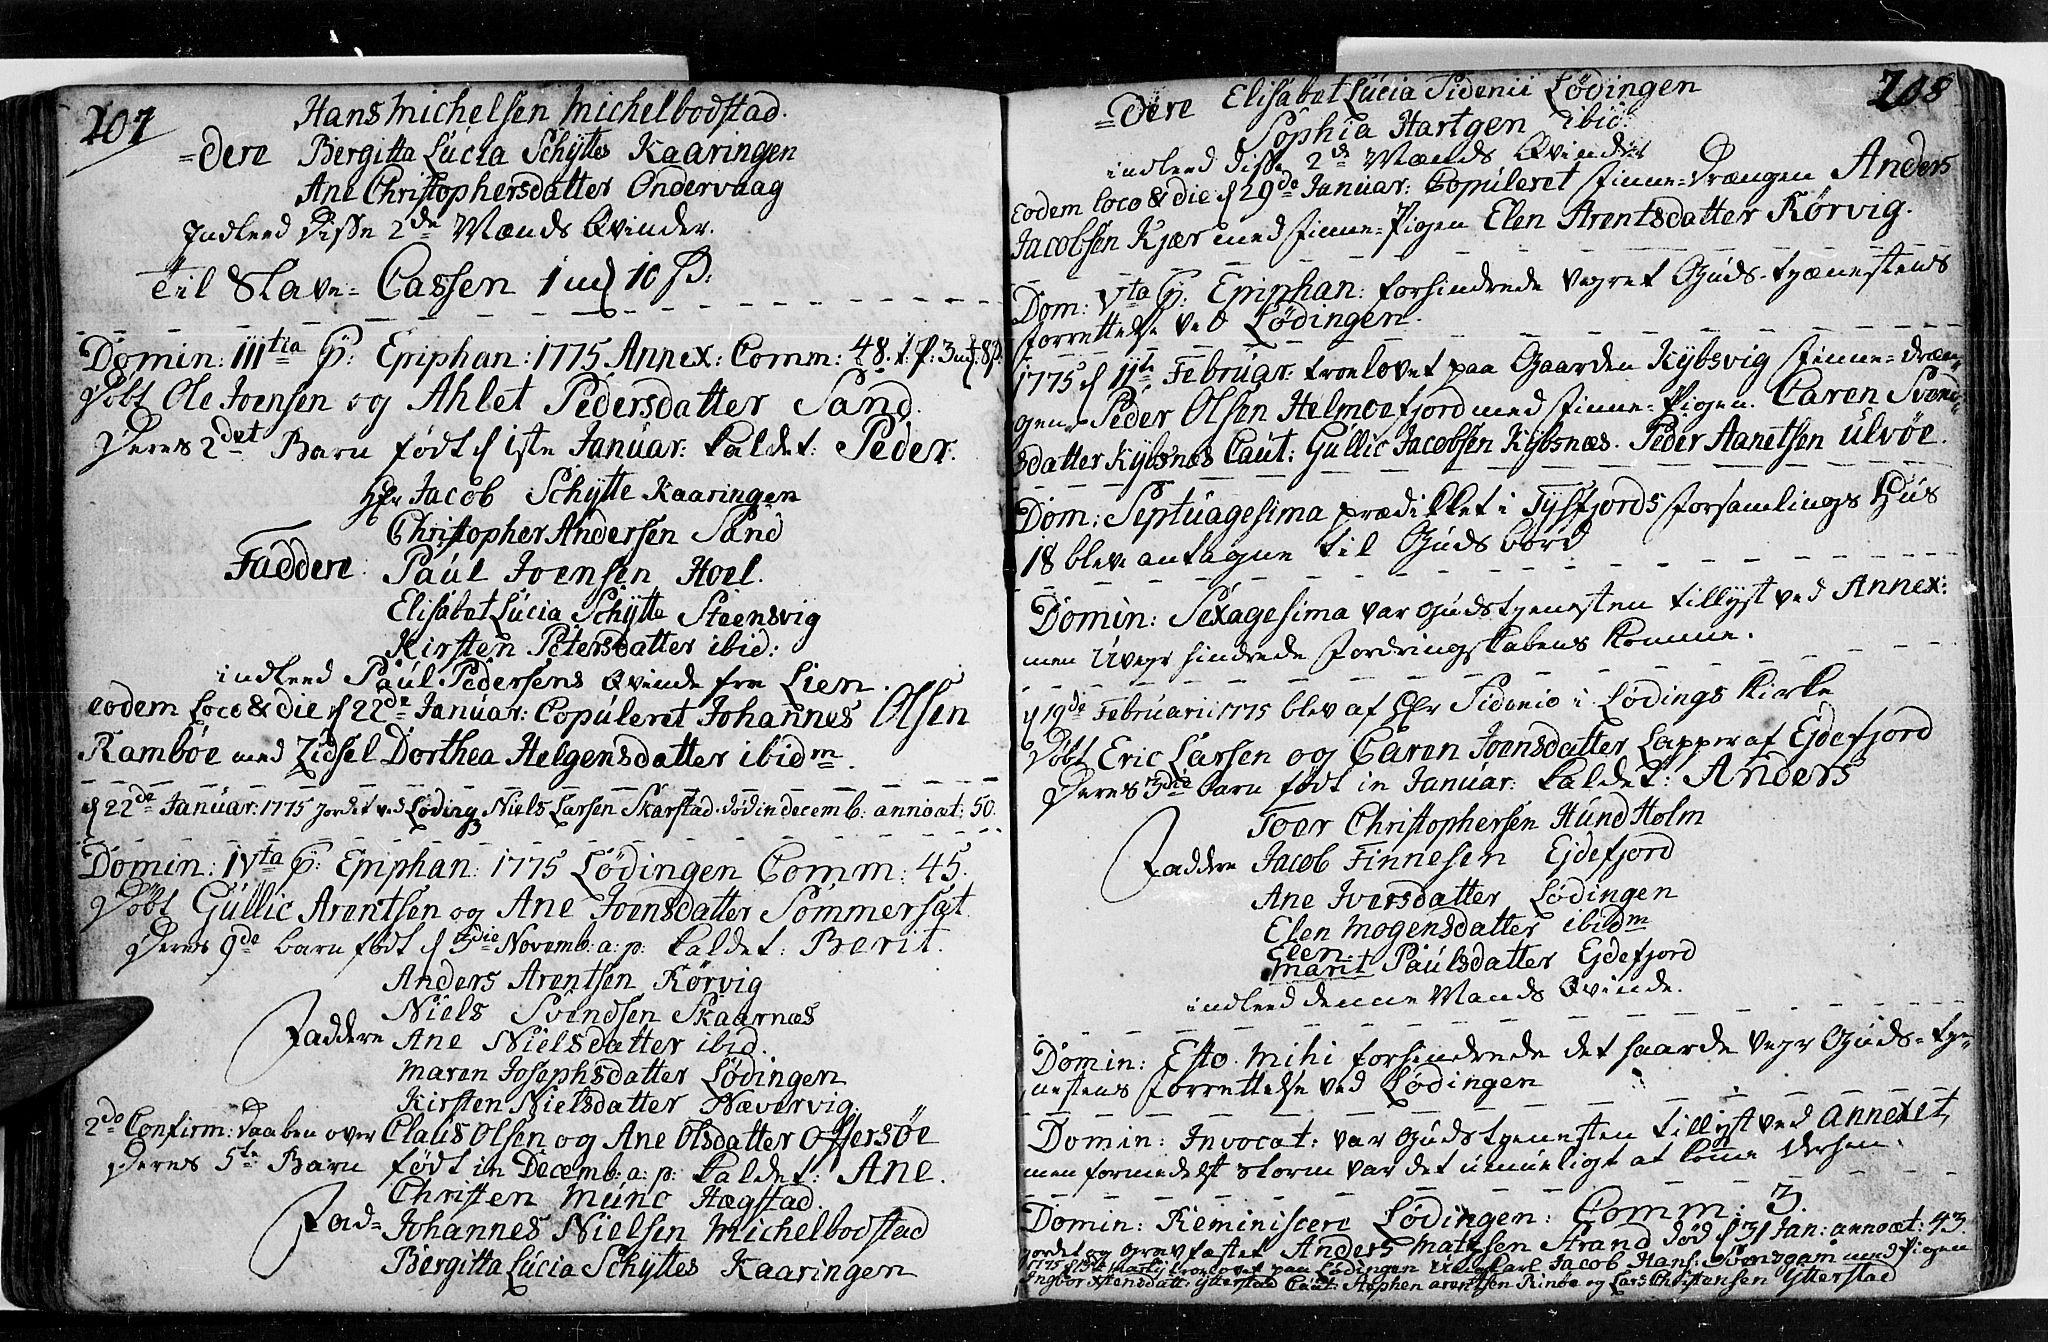 207
Hans Michelsen Michelbodstad.
=dere Bergitta Lucia Schyttes Kaaringen
Ane Christophersdatter Ondervaag
Indleed disse 2de Mænds Qvinder.
Til Slave-Cassen 1 mk 10 s:
Domin: IIItia p: Epiphan: 1775 Annex: Comm: 48. t: P: 3 mk. 8 s.
døbt Ole Joensen og Ahlet Pedersdatter Sand.
Deres 2det Barn født d 1ste Januar: kaldet: Peder.
Hr Jacob Schytte Kaaringen
Christopher Andersen Sand
Faddere Paul Joensen Hoel.
Elisabet Lucia Schytte Steensvig
Kirsten Petersdatter ibid:
indleed Paul Pedersens Qvinde fra Lien.
eodem Loco & die d 22de Januar: Copuleret Johannes Olsen
Rambøe med Zidsel Dorthea Helgensdatter ibidm.
d 22de Januar: 1775 jordet ved Løding Niels Larsen Skarstad. død in decemb: anno æt: 50.
Domin: IVta p: Epiphan: 1775 Lødingen Comm: 45.
døbt Gullic Arentsen og Ane Joensdatter Sommersæt.
Deres 9de barn født d Novemb: a: p: kaldet: Berit.
Anders Arentsen Kørvig
Niels Svendsen Skaarnæs
Faddere Ane Nielsdatter ibid.
Maren Josephsdatter Lødingen
Kirsten Nielsdatter Nævervig.
2do Confirm: daaben over Claus Olsen og Ane Olsdatter Offersøe
Deres 5te Barn født in Decemb: a: p: kaldet: Ane.
Christen Munc Hægstad.
Fad= Johannes Nielsen Michelbodstad
Bergitta Lucia Schyttes Kaaringen
208
=dere Elisabet Lucia Sidenii Lødingen
Sophia Hartgen ibid:
indleed disse 2de Mænds Qvinder
Eodem loco & die d 29de Januar: Copuleret Finne-Drængen Anders
Jacobsen Kjær med Finne-Pigen Elen Arentsdatter Kørvig.
Dom: Vta p: Epiphan: forhindrede Vejret Guds-tjænestens
Forrettelse ved Lødingen.
1775 d 11te Februar: troelovet paa Gaarden Kybsvig Finne-dræn-
gen Peder Olsen Helmoefjord med Finne-Pigen. Caren Svend-
sdatter Kybsnæs Caut: Gullic Jacobsen Kybsnæs. Peder Aanetsen Ulvøe.
Dom: Septuagesima prædikket i Tysfjords Forsamlings Huus
18 blev antagne til Guds bord
Domin: Sexagesima var Gudstjenesten tillyst ved Annex:
men Uvejr hindrede Fordringskabens komme.
d 19de Februarii 1775 blev af Hr Sidenio i Lødings Kirke
døbt Eric Larsen og Caren Joensdatter Lapper af Ejdefjord
Deres 3die barn født in Januar: kaldet: Anders
Toer Christophersen Hund Holm
Faddere Jacob Finnesen Ejdefjord
Ane Iversdatter Lødingen
Elen Mogensdatter ibidm
Elen.
Marit Paulsdatter Ejdefjord
indleed denne Mands Qvinde.
Domin: Esto. Mihi forhindrede det haarde Vejr Guds-tje-
nestens Forrettelse ved Lødingen
Domin: Invocat: var Gudstjenesten tillyst ved Annexet,
men formedelst storm var det umueligt at kome dersen.
Domin: Reminiscere Lødingen: Comm: 3.
jordet og Gravfæstet Anders Matzsen Strand død d 31 Jan: anno æt: 43.
1775 d Martij troelovet paa Lødingen Jacob Hans: med Pigen
Ingbor Ytterstad Caut: Stephen Arentsen Rinøe og Lars Christensen Ytterstad